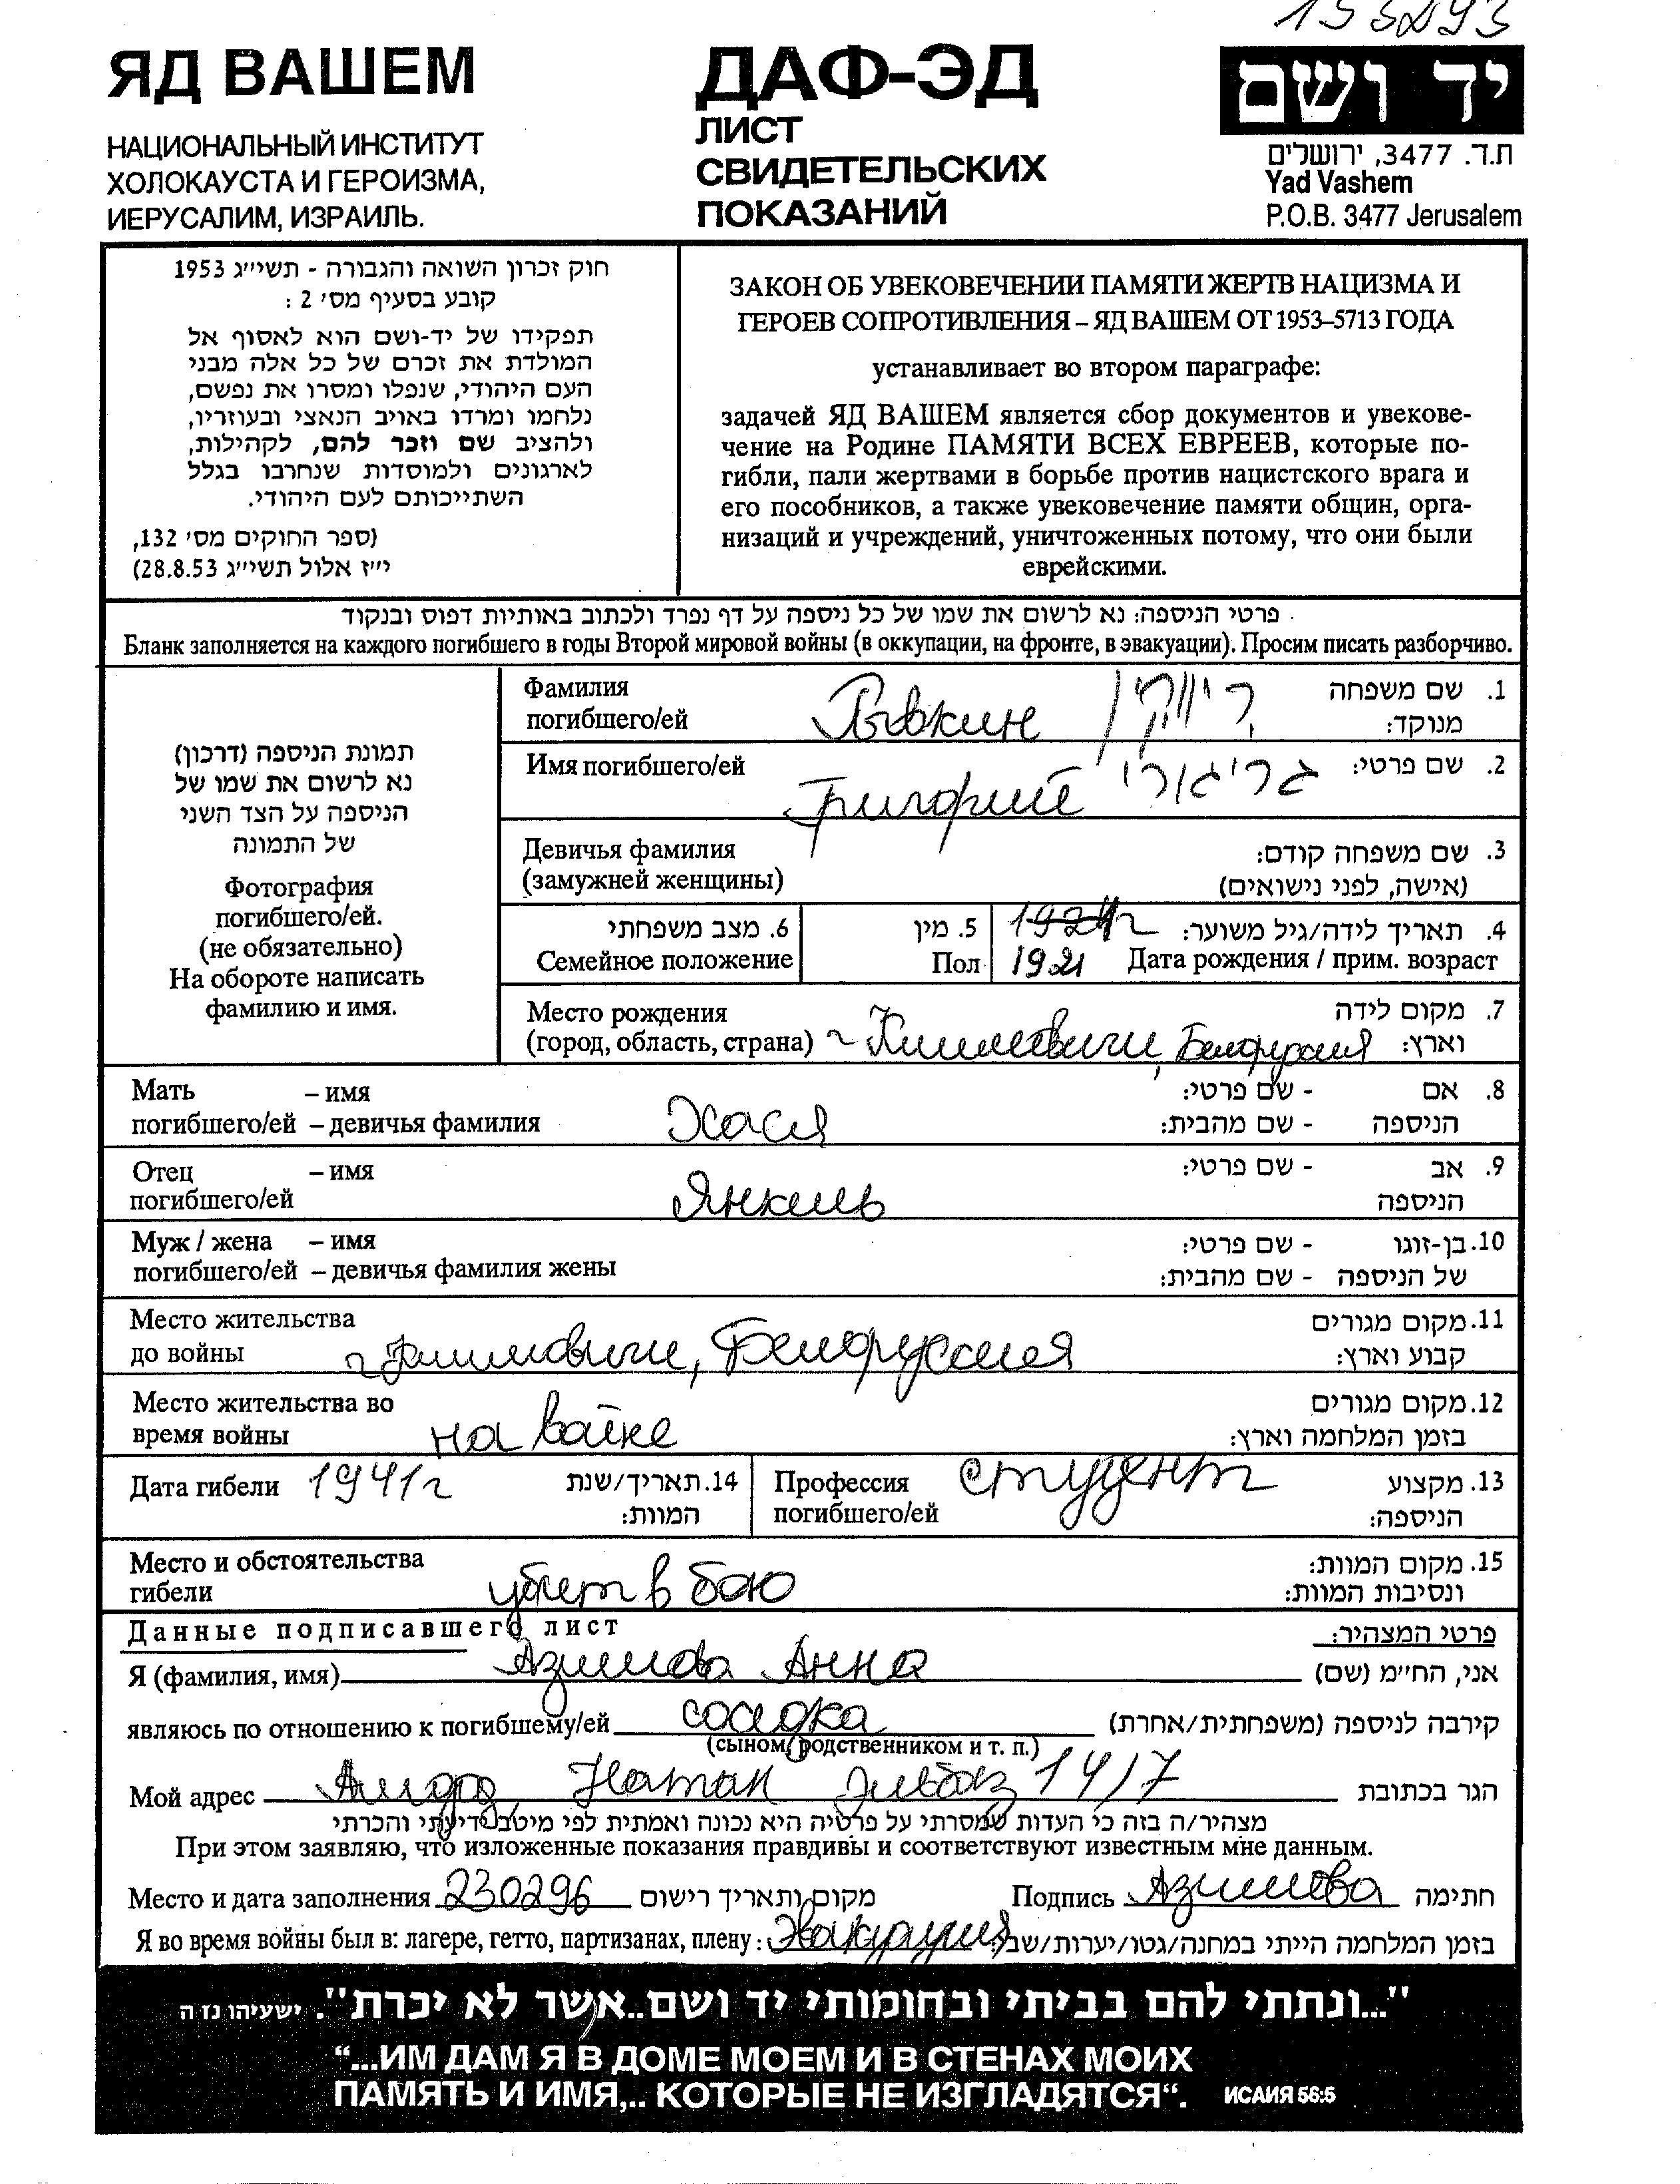 ЯД ВАШЕМ
НАЦИОНАЛЬНЫЙ ИНСТИТУТ
ХОЛОКАУСТА И ГЕРОИЗМА,
ИЕРУСАЛИМ, ИЗРАИЛЬ.
ДАФ-ЭД
ЛИСТ
СВИДЕТЕЛЬСКИХ
ПОКАЗАНИЙ
יד ושם
ת.ד. 3477, ירושלים
Yad Vashem
P.O.B. 3477 Jerusalem
חוק זכרון השואה והגבורה - תשי״ג 1953
קובע בסעיף מס׳ 2 :
תפקידו של יד-ושם הוא לאסוף אל
המולדת את זכרם של כל אלה מבני
העם היהודי, שנפלו ומסרו את נפשם,
נלחמו ומרדו באויב הנאצי ובעוזריו,
ולהציב שם וזכר להם, לקהילות,
לארגונים ולמוסדות שנחרבו בגלל
השתייכותם לעם היהודי.
(ספר החוקים מס׳ 132,
י״ז אלול תשי״ג 28.8.53)
ЗАКОН ОБ УВЕКОВЕЧЕНИИ ПАМЯТИ ЖЕРТВ НАЦИЗМА И
ГЕРОЕВ СОПРОТИВЛЕНИЯ – ЯД ВАШЕМ ОТ 1953–5713 ГОДА
устанавливает во втором параграфе:
задачей ЯД ВАШЕМ является сбор документов и увекове-
чение на Родине ПАМЯТИ ВСЕХ ЕВРЕЕВ, которые по-
гибли, пали жертвами в борьбе против нацистского врага и
его пособников, а также увековечение памяти общин, орга-
низаций и учреждений, уничтоженных потому, что они были
еврейскими.
פרטי הניספה: נא לרשום את שמו של כל ניספה על דף נפרד ולכתוב באותיות דפוס ובנקוד
Бланк заполняется на каждого погибшего в годы Второй мировой войны (в оккупации, на фронте, в эвакуации). Просим писать разборчиво.
תמונת הניספה (דרכון)
נא לרשום את שמו של
הניספה על הצד השני
של התמונה
Фотография
погибшего/ей.
(не обязательно)
На обороте написать
фамилию и имя.
Фамилия
погибшего/ей Рывкин ריווקין
1. שם משפחה
מנוקד:
Имя погибшего/ей Григорий גריגורי 2. שם פרטי:
Девичья фамилия
(замужней женщины)
3. שם משפחה קודם:
(אישה, לפני נישואים)
6. מצב משפחתי
Семейное положение
5. מין
Пол
4. תאריך לידה/גיל משוער:
1921 Дата рождения / прим. возраст
Место рождения
(город, область, страна) г Климовичи, Белоруссия
7. מקום לידה
וארץ:
Мать – имя
погибшего/ей – девичья фамилия Хася
8. אם - שם פרטי:
הניספה - שם מהבית:
Отец – имя
погибшего/ей Янкель
9. אב - שם פרטי:
הניספה
Муж / жена – имя
погибшего/ей – девичья фамилия жены
10. בן-זוגו - שם פרטי:
של הניספה - שם מהבית:
Место жительства
до войны г Климовичи, Белоруссия
11. מקום מגורים
קבוע וארץ:
Место жительства во
время войны на войне
12. מקום מגורים
בזמן המלחמה וארץ:
Дата гибели 1941г
14. תאריך/שנת
המוות:
Профессия
погибшего/ей студент
13. מקצוע
הניספה:
Место и обстоятельства
гибели убит в бою
15. מקום המוות:
ונסיבות המוות:
Данные подписавшего лист פרטי המצהיר:
Я (фамилия, имя) Азимова Анна אני, הח״מ (שם)
являюсь по отношению к погибшему/ей соседка קירבה לניספה (משפחתית/אחרת)
(сыном, родственником и т. п.)
Мой адрес Ашдод Натан Эльбаз 14/7 הגר בכתובת
מצהיר/ה בזה כי העדות שמסרתי על פרטיה היא נכונה ואמתית לפי מיטב ידיעתי והכרתי
При этом заявляю, что изложенные показания правдивы и соответствуют известным мне данным.
Место и дата заполнения 230296 מקום ותאריך רישום Подпись Азимова חתימה
Я во время войны был в: лагере, гетто, партизанах, плену: Эвакуация בזמן המלחמה הייתי במחנה/גטו/יערות/שבי:
"...ונתתי להם בביתי ובחומותי יד ושם..אשר לא יכרת". ישעיהו נז ה
“...ИМ ДАМ Я В ДОМЕ МОЕМ И В СТЕНАХ МОИХ
ПАМЯТЬ И ИМЯ,.. КОТОРЫЕ НЕ ИЗГЛАДЯТСЯ“. ИСАИЯ 56:5